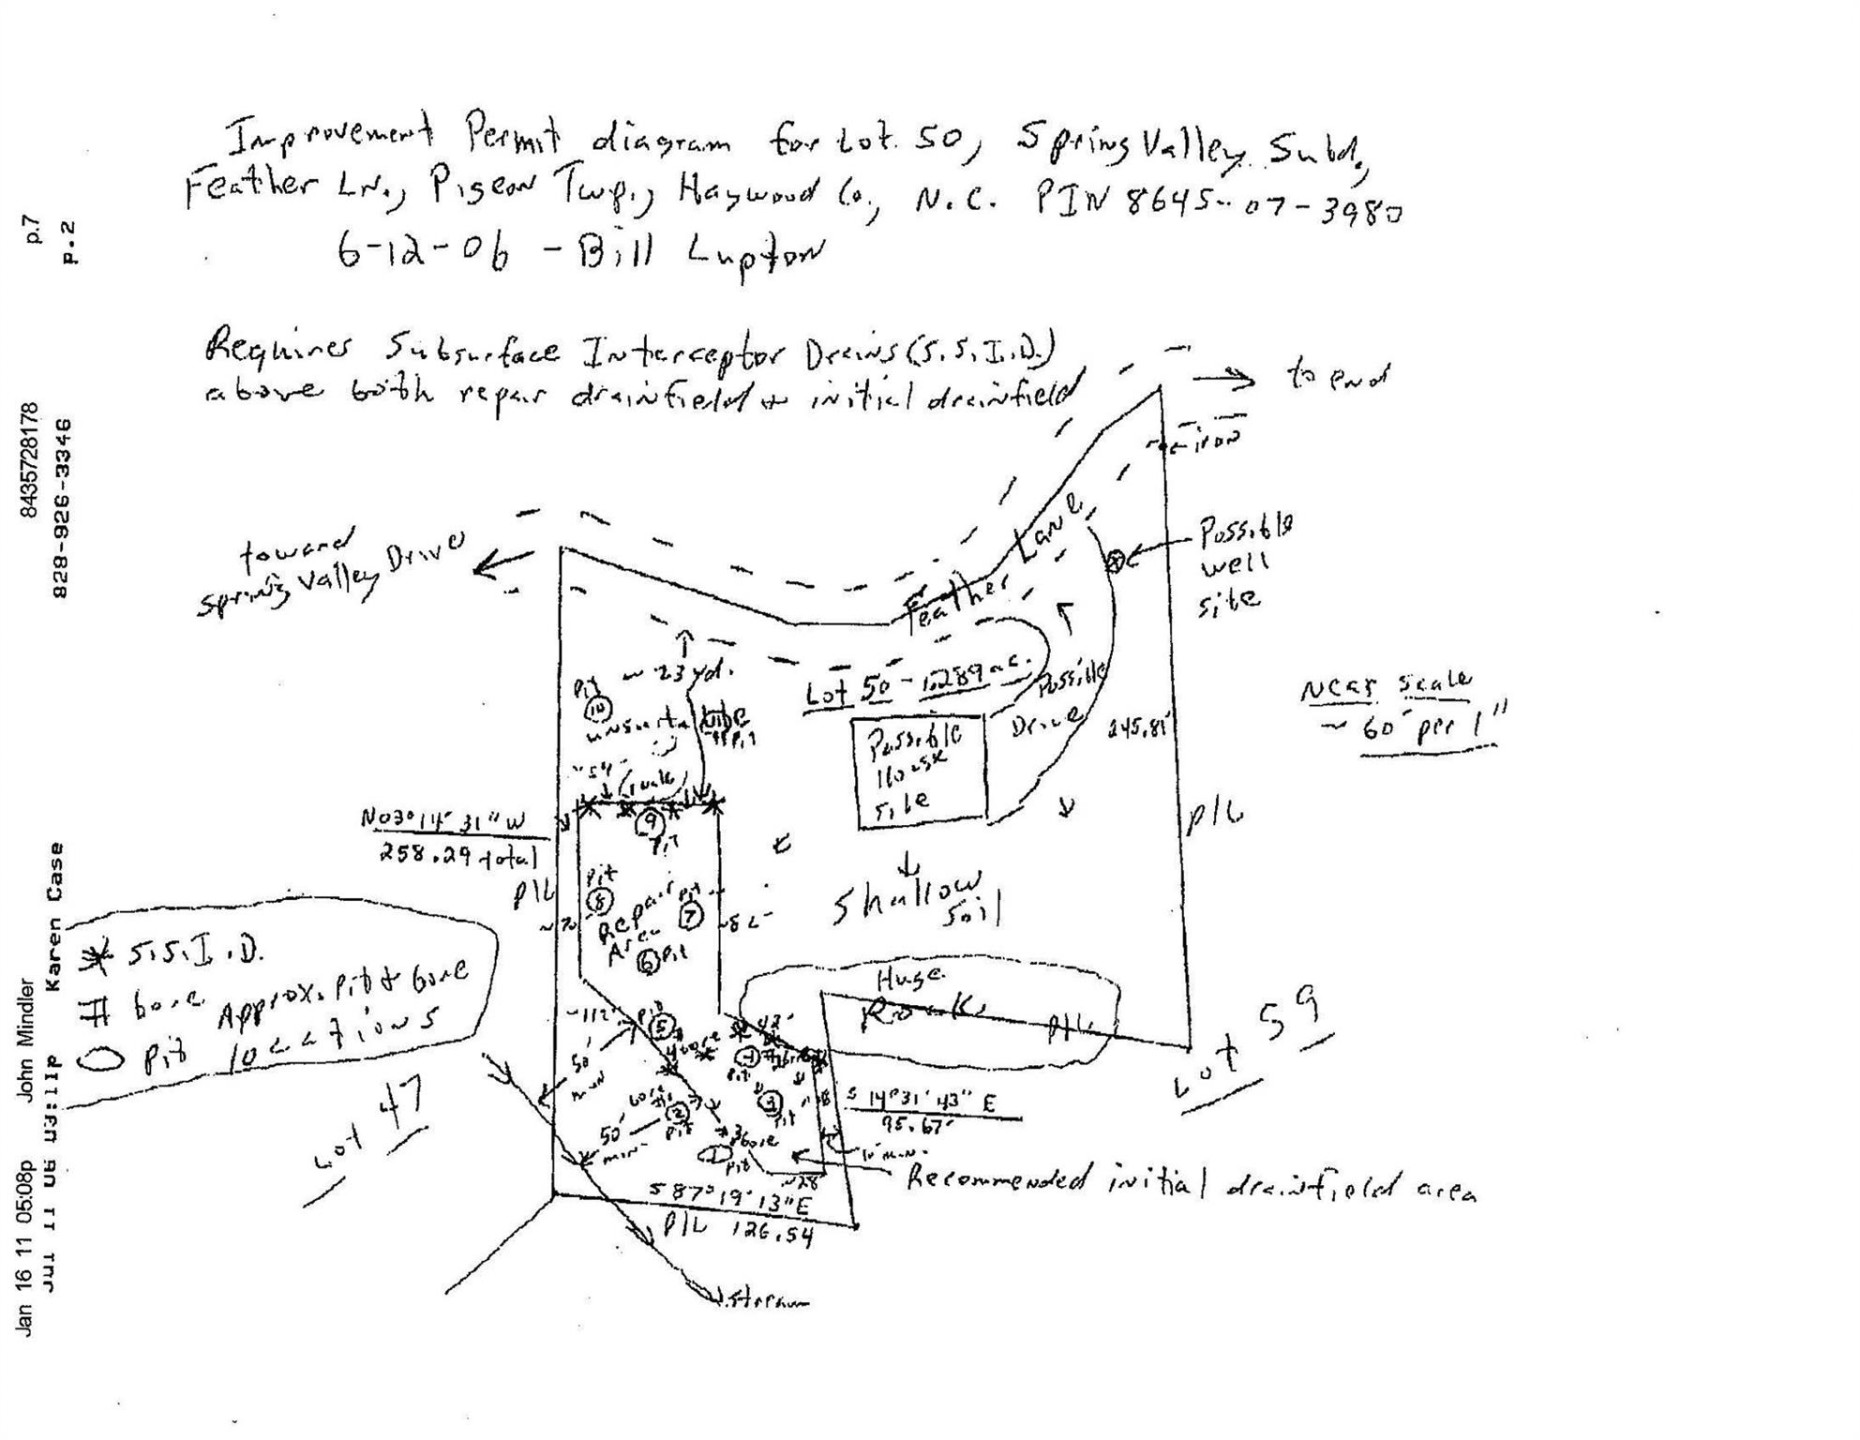 Improvement Permit diagram for Lot 50, Spring Valley Subd.,
Feather LN., Pigeon Twp., Haywood Co., N.C. PIN 8645-07-3980
6-12-06 - Bill Lupton
Requires Subsurface Interceptor Drains (S.S.I.D.)
above both repair drainfield + initial drainfield
p.7
p.2
8435728178
828-926-3346
John Mindler
Karen Case
Jan 16 11 05:08p
to end
iron
toward
Spring Valley Drive
Feather Lane
Possible
well
site
~ 23 yd.
Pit
10
unsuitable
Lot 50 -
Possible
Drive
Possible
House
site
245.81'
Near scale
~ 60' per 1"
~54'
(rock)
9
Pit
N03°14'31"W
258.29 total
P/L
P/L
Pit
8
Repair
Area
Pit
7
6 Pit
Shallow
Soil
S.S.I.D.
# bore
Pit
Approx. pit + bore
locations
Huge
Rock
P/L
Lot 59
Lot 47
~112'
5
43'
50'
min
4
Pit
3
Pit
S 14°31'43" E
95.67'
50'
min
bore
2
Pit
3 bore
1
Pit
10' min.
~28
Recommended initial drainfield area
S 87°19'13"E
P/L 126.54
stream